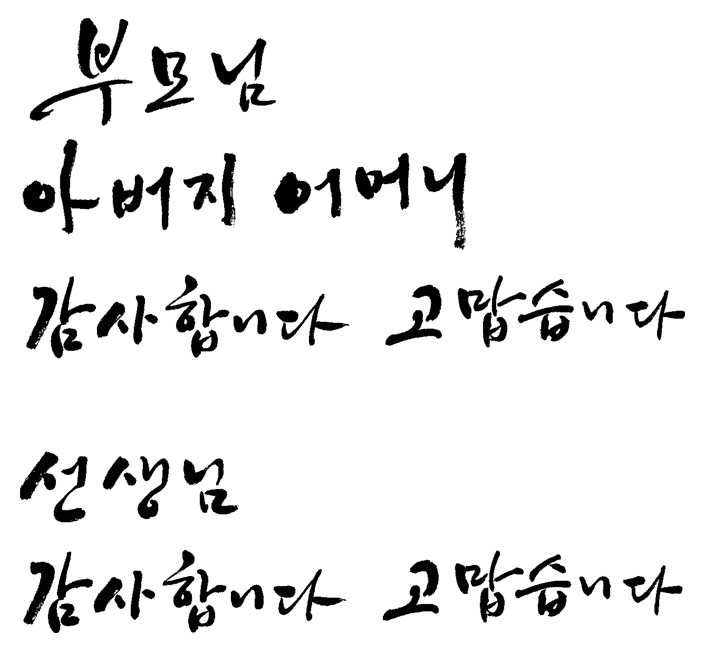 부모님
아버지 어머니
감사합니다 고맙습니다
선생님
감사합니다 고맙습니다